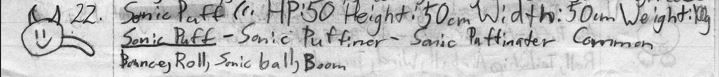 22. Sonic Puff (: HP:50 Height:50cm Width:50cm Weight:1Kg
Sonic Puff - Sonic Puffiner - Sonic Puffinater Common
Bounce, Roll, Sonic ball, Boom